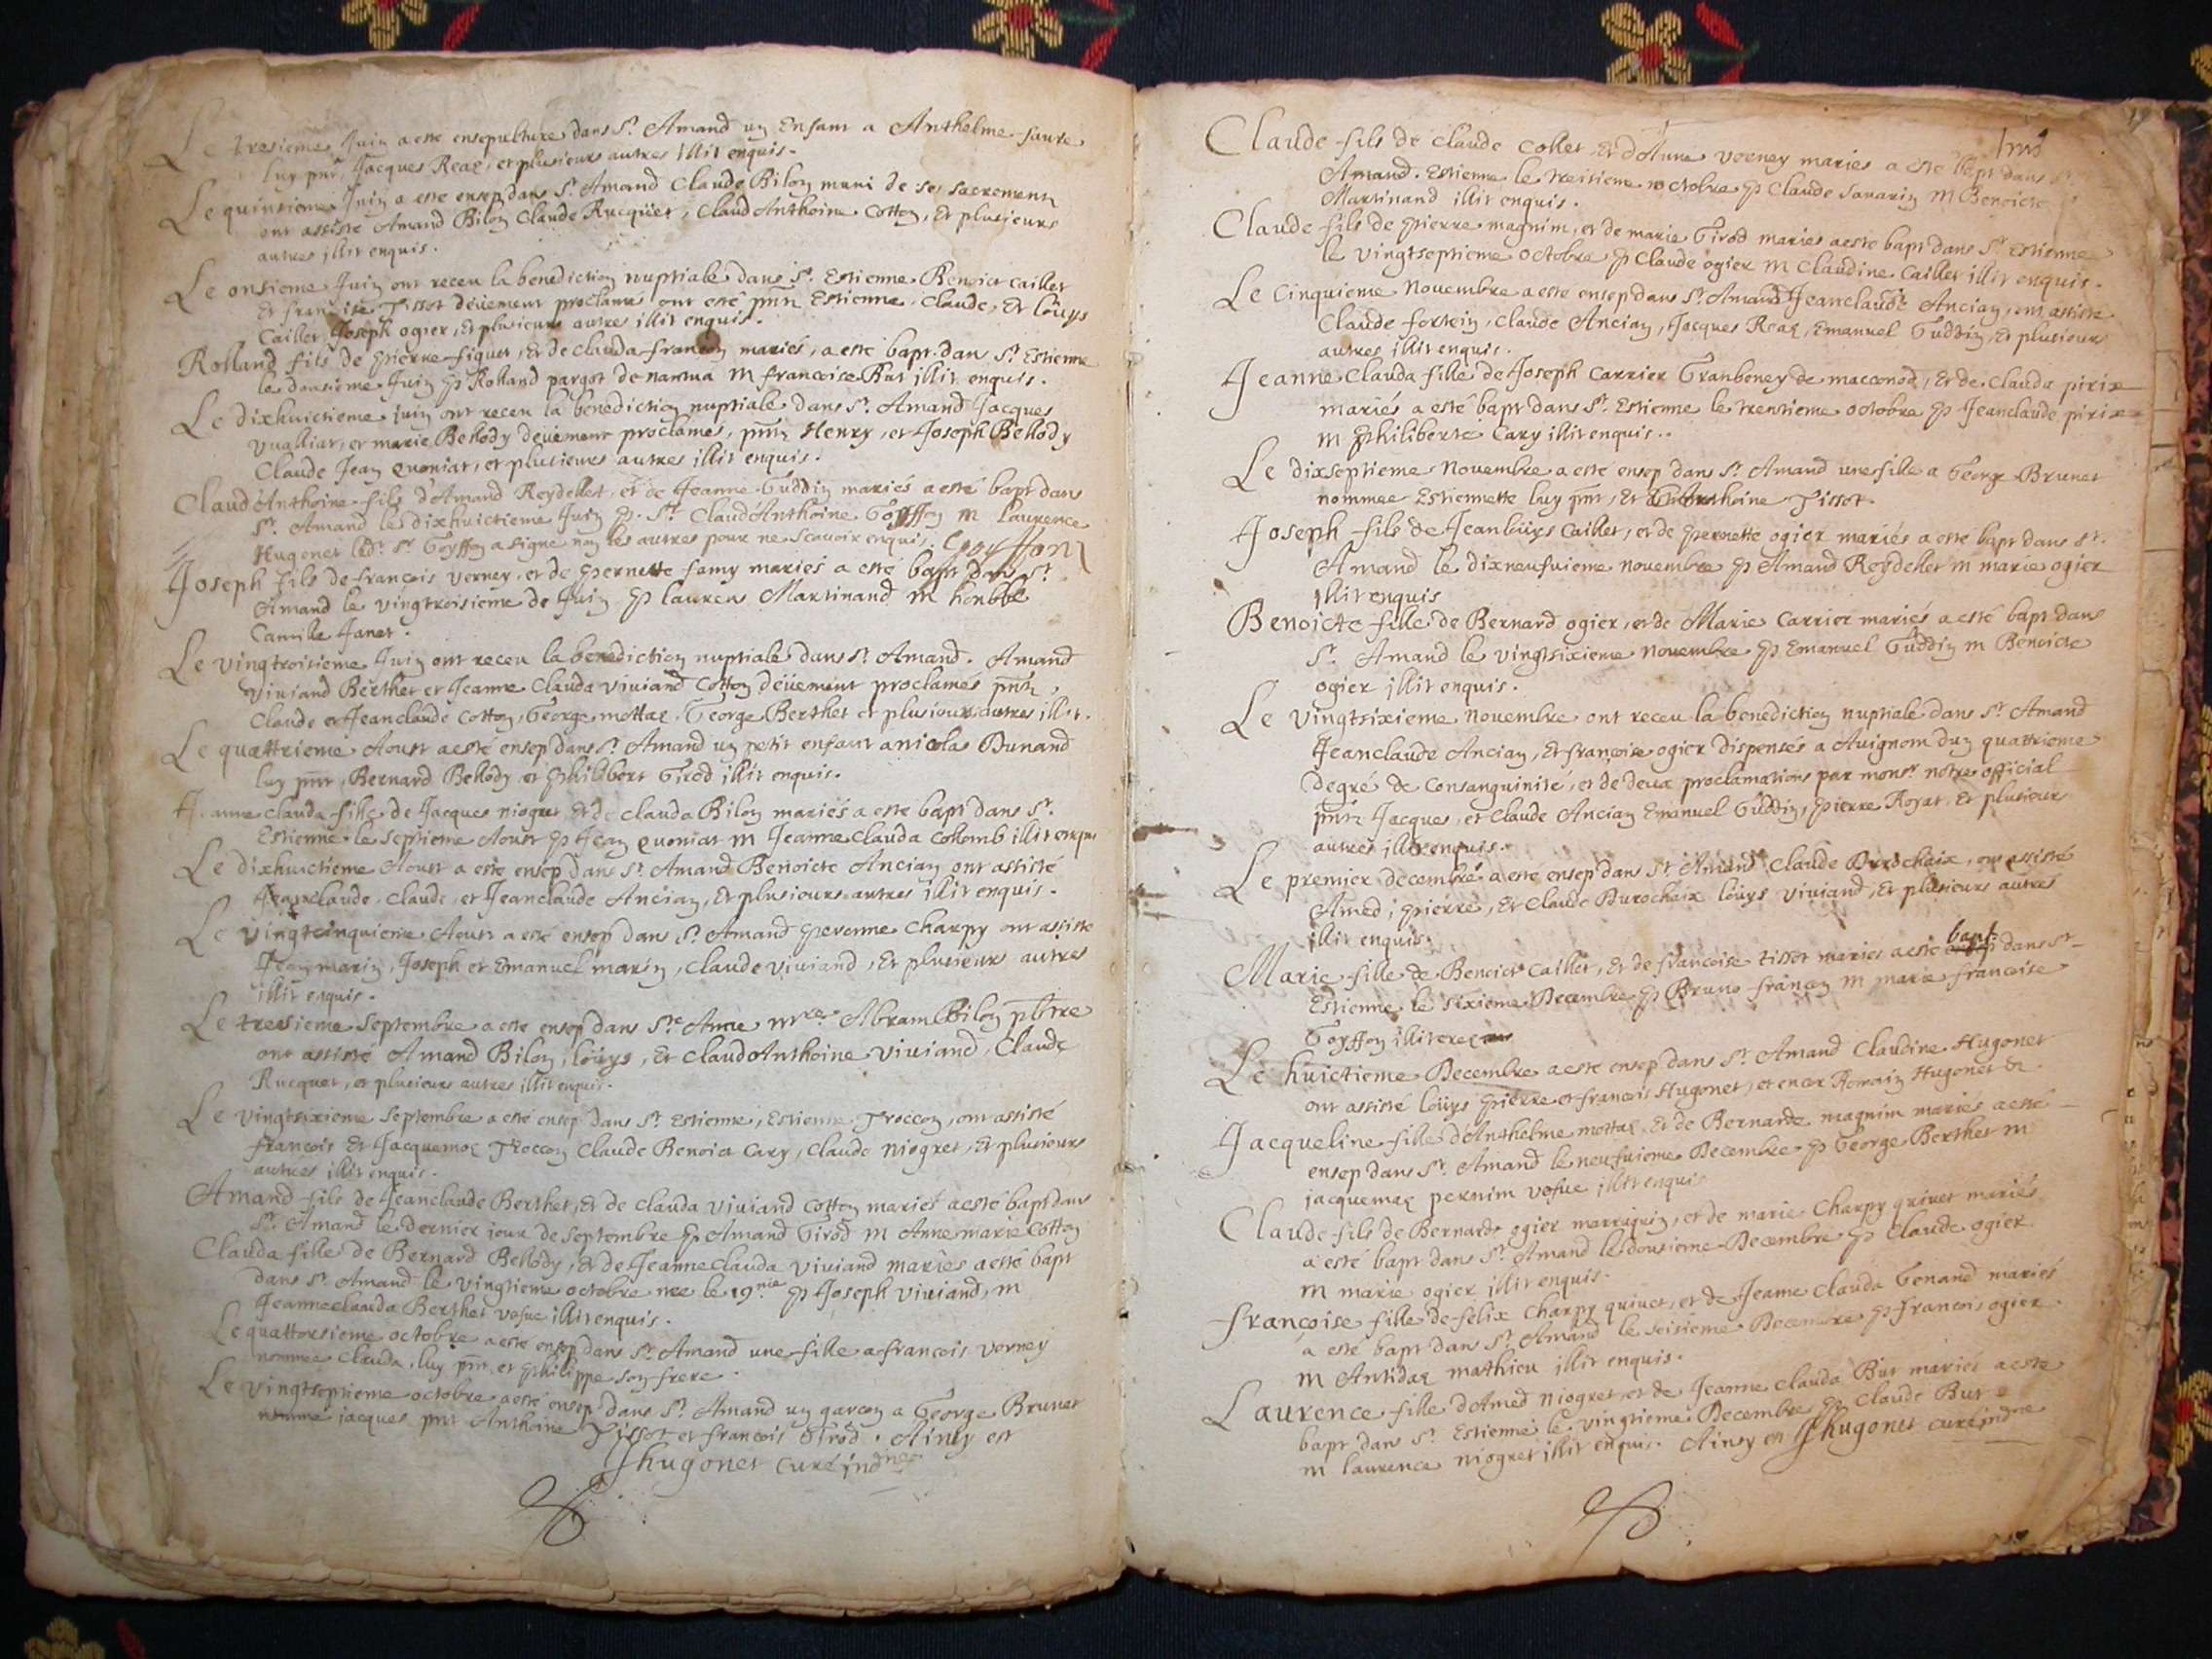 Le tresieme Juin a este ensepulture dans St. Amand un Enfant a Anthelme favre
luy pnt, Jacques Reaz, et plusieurs autres illit enquis.
Le quinsieme Juin a este ensep dans St. Amand Claude Bilon muni de ses sacrements
ont assisté Amand Bilon Claude Rucquet, Claud'Anthoine Cotton, Et plusieurs
autres illit enquis.
Le onsieme Juin ont receu la benediction nuptiale dans St. Estienne Benoict Caillet
Et françoise Tissot deüement proclames ont esté pnts Estienne, Claude, Et Loüys
Caillet, Joseph ogier, Et plusieurs autres illit enquis.
Rolland fils de Pierre figuet, Et de Clauda françon mariés, a esté bapt. dans St Estienne
le dousieme Juin P Rolland pargot de nantua M françoise But illit enquis.
Le dixhuictieme juin ont receu la benediction nuptiale dans St. Amand Jacques
Vualliat, et marie Bellody deüement proclames, pnts Henry, et Joseph Bellody
Claude Jean Quoniat, et plusieurs autres illit enquis.
Claud'Anthoine fils d'Amand Reydellet, et de Jeanne Guddin mariés a esté bapt dans
St. Amand le dixhuictieme Juin P. Sr Claud'Anthoine Goyffon M Laurence
Hugonet ledt. Sr Goyffon a signé non les autres pour ne scavoir enquis. Goyffon
Joseph fils de françois Verney, et de Pernette famy mariés a esté bapt dans St
Amand le vingtroisieme de Juin P laurens Martinand M honble
Camille Janet.
Le vingtroisieme Juin ont receu la benediction nuptiale dans St Amand. Amand
Viviand Berthet et Jeanne Clauda Viviand Cotton deüement proclamés pnts,
Claude et Jeanclaude Cotton, George mottaz, George Berthet et plusieurs autres illit.
Le quattrieme Aoust a esté ensep dans St. Amand un petit enfant a nicolas Dunand
luy pnt, Bernard Bellody et Philibert Girod illit enquis.
Jeanne Clauda fille de Jacques niogret Et de Clauda Bilon mariés a este bapt dans St.
Estienne le septieme Aoust P Jean Quoniat M Jeanne Clauda Collomb illit enquis
Le dixhuictieme Aoust a este ensep dans St. Amand Benoicte Ancian ont assisté
Jeanclaude, Claude, et Jeanclaude Ancian, Et plusieurs autres illit enquis.
Le vingtcinquieme Aoust a esté ensep dans St. Amand Peronne Charpy ont assisté
Jean marin, Joseph et Emanuel marin, Claude viviand, Et plusieurs autres
illit enquis.
Le tresieme Septembre a este ensep dans Ste Anne mre Abram Bilon pbtre
ont assisté Amand Bilon, loüys, Et Claud'Anthoine Viviand, Claude
Rucquet, et plusieurs autres illit enquis.
Le vingtsixieme Septembre a esté ensep dans St Estienne, Estienne Troccon, ont assisté
françois Et Jacquemoz Troccon Claude Benoict Cary, Claude niogret, Et plusieurs
autres illit enquis.
Amand fils de Jeanclaude Berthet, Et de Clauda Viviand Cotton mariés a esté bapt dans
St. Amand le dernier jour de Septembre P Amand Girod M Anne marie Cotton
Clauda fille de Bernard Bellody, Et de Jeanne Clauda Viviand mariés a esté bapt
dans St Amand le vingtieme octobre née le 19me P Joseph Viviand, M
Jeanneclauda Berthet vefue illit enquis.
Le quattorsieme octobre a este ensep dans St Amand une fille a françois Verney
nommée Clauda, luy pnt et Philippe son frere.
Le vingtseptieme octobre a esté ensep dans St. Amand un garçon a George Brunet
nomme jacques pnt Anthoine Tissot et françois Girod. Ainsy est
Jhugonet curé indne
Claude fils de Claude Collet Et d'Anne Verney mariés a este bapt dans St
Amand. Estienne le treisieme octobre P Claude Savarin M Benoicte
Martinand illit enquis.
Claude fils de Pierre magnin, et de marie Girod mariés a este bapt dans St Estienne
le vingtseptieme octobre P Claude ogier M Claudine Caillet illit enquis.
Le Cinquieme Novembre a este ensep dans St. Amand Jeanclaude Ancian, ont assisté
Claude fortein, Claude Ancian, Jacques Reaz, Emanuel Guddin, Et plusieurs
autres illit enquis.
Jeanne Clauda fille de Joseph Carrier Granboney de macconod, Et de Clauda pirix
mariés a esté bapt dans St. Estienne le trentieme octobre P Jeanclaude pirix
M Philiberte Cary illit enquis.
Le dixseptieme Novembre a este ensep dans St. Amand une fille a George Brunet
nommee Estiennette luy pnt, Et Anthoine Tissot.
Joseph fils de Jeanloüys Caillet, et de Pernette ogier mariés a esté bapt dans St.
Amand le dixneufuieme novembre P Amand Reydellet M marie ogier
illit enquis
Benoicte fille de Bernard ogier, et de Marie Carrier mariés a esté bapt dans
St. Amand le vingtsixieme novembre P Emanuel Guddin M Benoicte
ogier illit enquis.
Le vingtsixieme novembre ont receu la benediction nuptiale dans St Amand
Jeanclaude Ancian, Et françoise ogier dispensés a Auignom dun quattrieme
degré de Consanguinité, et de deux proclamations par monsr notre official
pnts Jacques, et Claude Ancian Emanuel Guddin, Pierre Royat, Et plusieurs
autres illit enquis.
Le premier decembre a esté ensep dans St Amand Claude Durochaix, ont assisté
Amed, Pierre, Et Claude Durochaix loüys Viviand, Et plusieurs autres
illit enquis.
Marie fille de Benoict Caillet, Et de françoise tissot mariés a esté bapt dans St
Estienne le sixieme Decembre P Bruno françon M marie françoise
Goyffon illit
Le huictieme Decembre a este ensep dans St Amand Claudine Hugonet
ont assisté loüys Pierre et françois Hugonet, et encor Romain Hugonet &.
Jacqueline fille d'Anthelme mottaz Et de Bernarde magnim mariés a esté
ensep dans St Amand le neufuieme Decembre P George Berthet M
jacquemaz pernim vefue illit enquis
Claude fils de Bernard ogier marraquin, et de marie Charpy quivet mariés
a esté bapt dans St Amand le dousieme Decembre P Claude ogier
M marie ogier illit enquis.
françoise fille de felix Charpy quivet, et de Jeanne Clauda Genand mariés
a esté bapt dans St. Amand le seisieme Decembre P françois ogier
M Antidaz mathieu illit enquis.
Laurence fille d'Amed niogret et de Jeanne Clauda But mariés a este
bapt dans St Estienne le vingtieme Decembre P Claude But
M laurence niogret illit enquis. Ainsy est Jhugonet curé indne